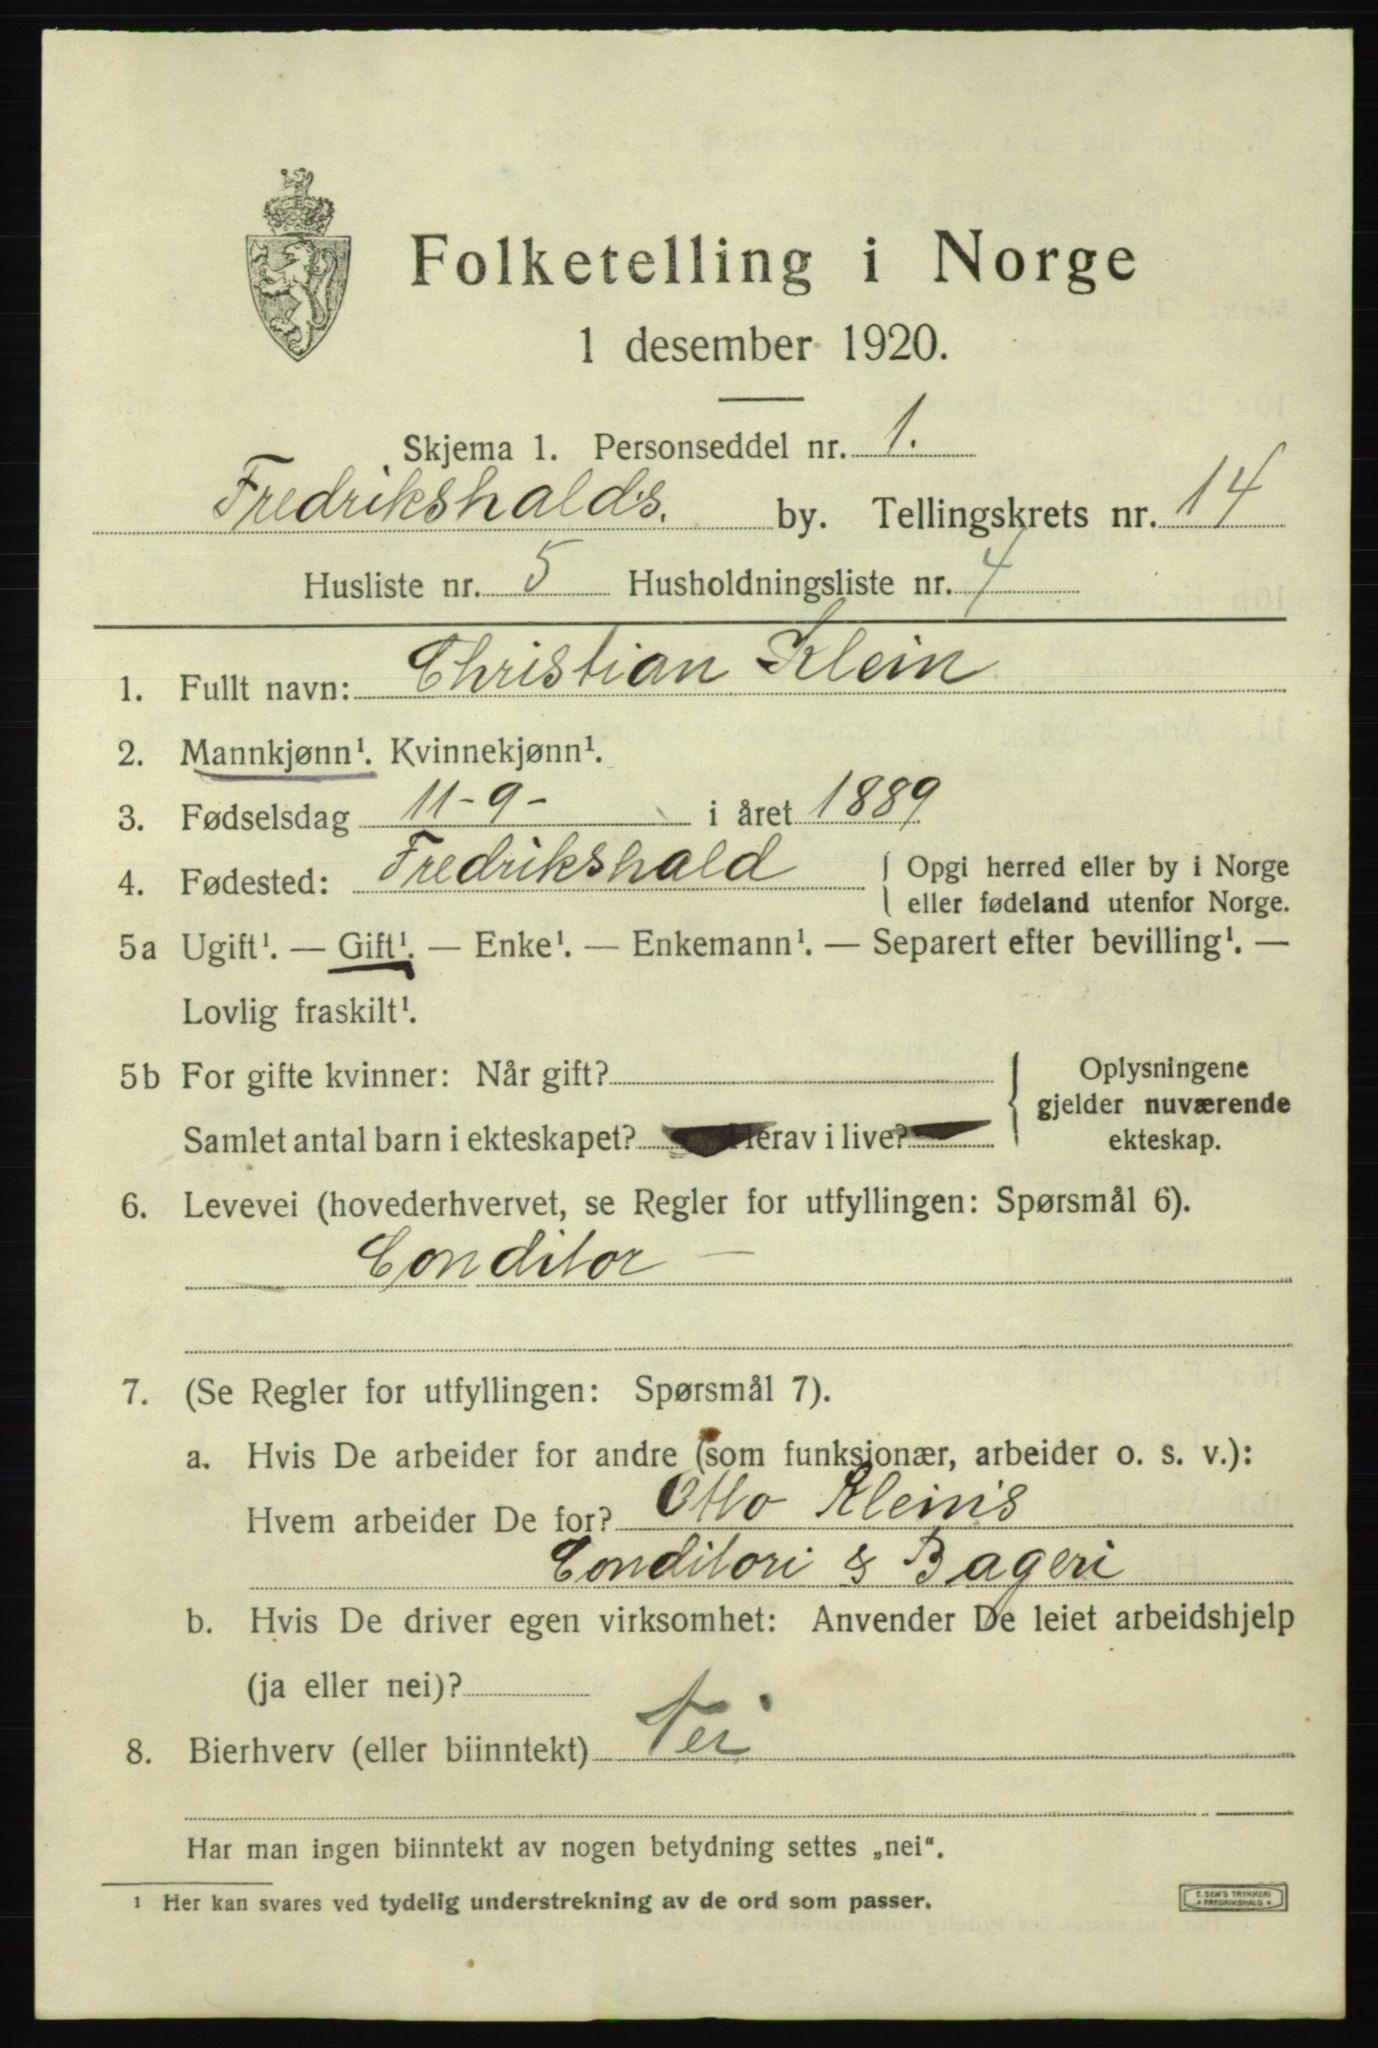 Folketelling i Norge
1 desember 1920.
Skjema 1. Personseddel nr. 1.
Fredrikshalds. by. Tellingskrets nr. 14
Husliste nr. 5 Husholdningsliste nr. 4
1. Fullt navn: Christian Klein
2. Mannkjønn¹. Kvinnekjønn¹.
3. Fødselsdag 11-9- i året 1889
4. Fødested: Fredrikshald { Opgi herred eller by i Norge
eller fødeland utenfor Norge.
5a Ugift¹. — Gift¹. — Enke¹. — Enkemann¹. — Separert efter bevilling¹. —
Lovlig fraskilt¹.
5b For gifte kvinner: Når gift? { Oplysningene
gjelder nuværende
Samlet antal barn i ekteskapet? Herav i live? ekteskap.
6. Levevei (hovederhvervet, se Regler for utfyllingen: Spørsmål 6).
Conditor —
7. (Se Regler for utfyllingen: Spørsmål 7).
a. Hvis De arbeider for andre (som funksjonær, arbeider o. s. v.):
Hvem arbeider De for? Otto Klein's
Conditori & Bageri
b. Hvis De driver egen virksomhet: Anvender De leiet arbeidshjelp
(ja eller nei)?
8. Bierhverv (eller biinntekt) Nei
Har man ingen biinntekt av nogen betydning settes „nei“.
1 Her kan svares ved tydelig understrekning av de ord som passer.
E. SEM'S TRYKKERI
* FREDRIKSHALD *